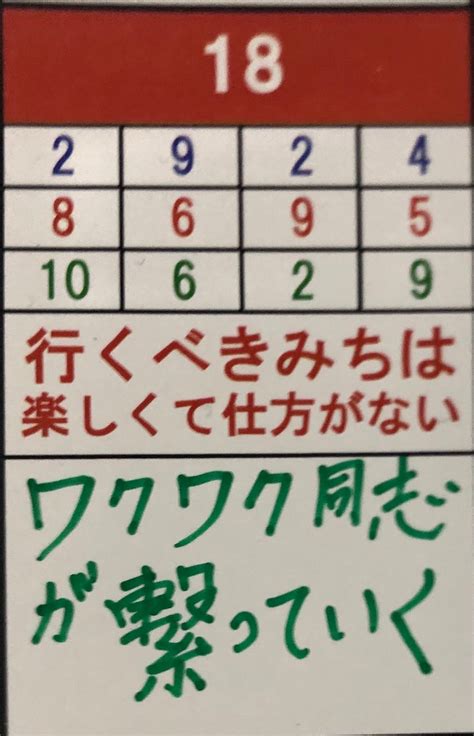 18
2 9 2 4
8 6 9 5
10 6 2 9
行くべきみちは
楽しくて仕方がない
ワクワク同志
が繋っていく